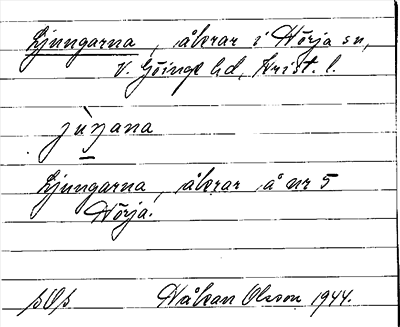 Ljungarna, åkrar i Nörja sn,
V. Göinge hd, Krist. l.
jùŋana
Ljungarna, åkrar å nr 5
Nörja.
Håkan Olsson 1944.